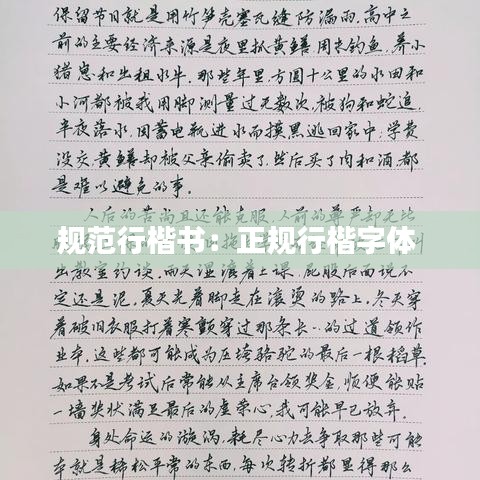 保留节目就是用竹笋壳塞瓦缝防漏雨,高中之
前的主要经济来源是夜里抓黄鳝用来钓鱼,养小
猎崽和出租水牛。那些年里方圆十公里的水田和
小河都被我用脚测量过无数次,被狗和蛇追,
半夜落水,因蓄电瓶进水而摸黑逃回家中;学费
没交,黄鳝却被父亲偷卖了,然后买了肉和酒,都
是难以避免的事。
人后的苦尚且还能克服,人前的尊严却毛
规范行楷书：正规行楷字体
出教室约谈,雨天湿漉着上课,屁股后面说不
定还是泥。夏天光着脚走在滚烫的路上,冬天穿
着破旧衣服打着寒颤穿过那条长…的过道领作
业本,这些都可能成为压垮骆驼的最后一根稻草。
如果不是考试后常能从主席台领奖金,顺便能贴
一墙奖状满足最后的虚荣心,我可能早已放弃。
身处命运的漩涡,耗尽心力去争取那些可能
本就是稀松平常的东西,每次转折都显得那么